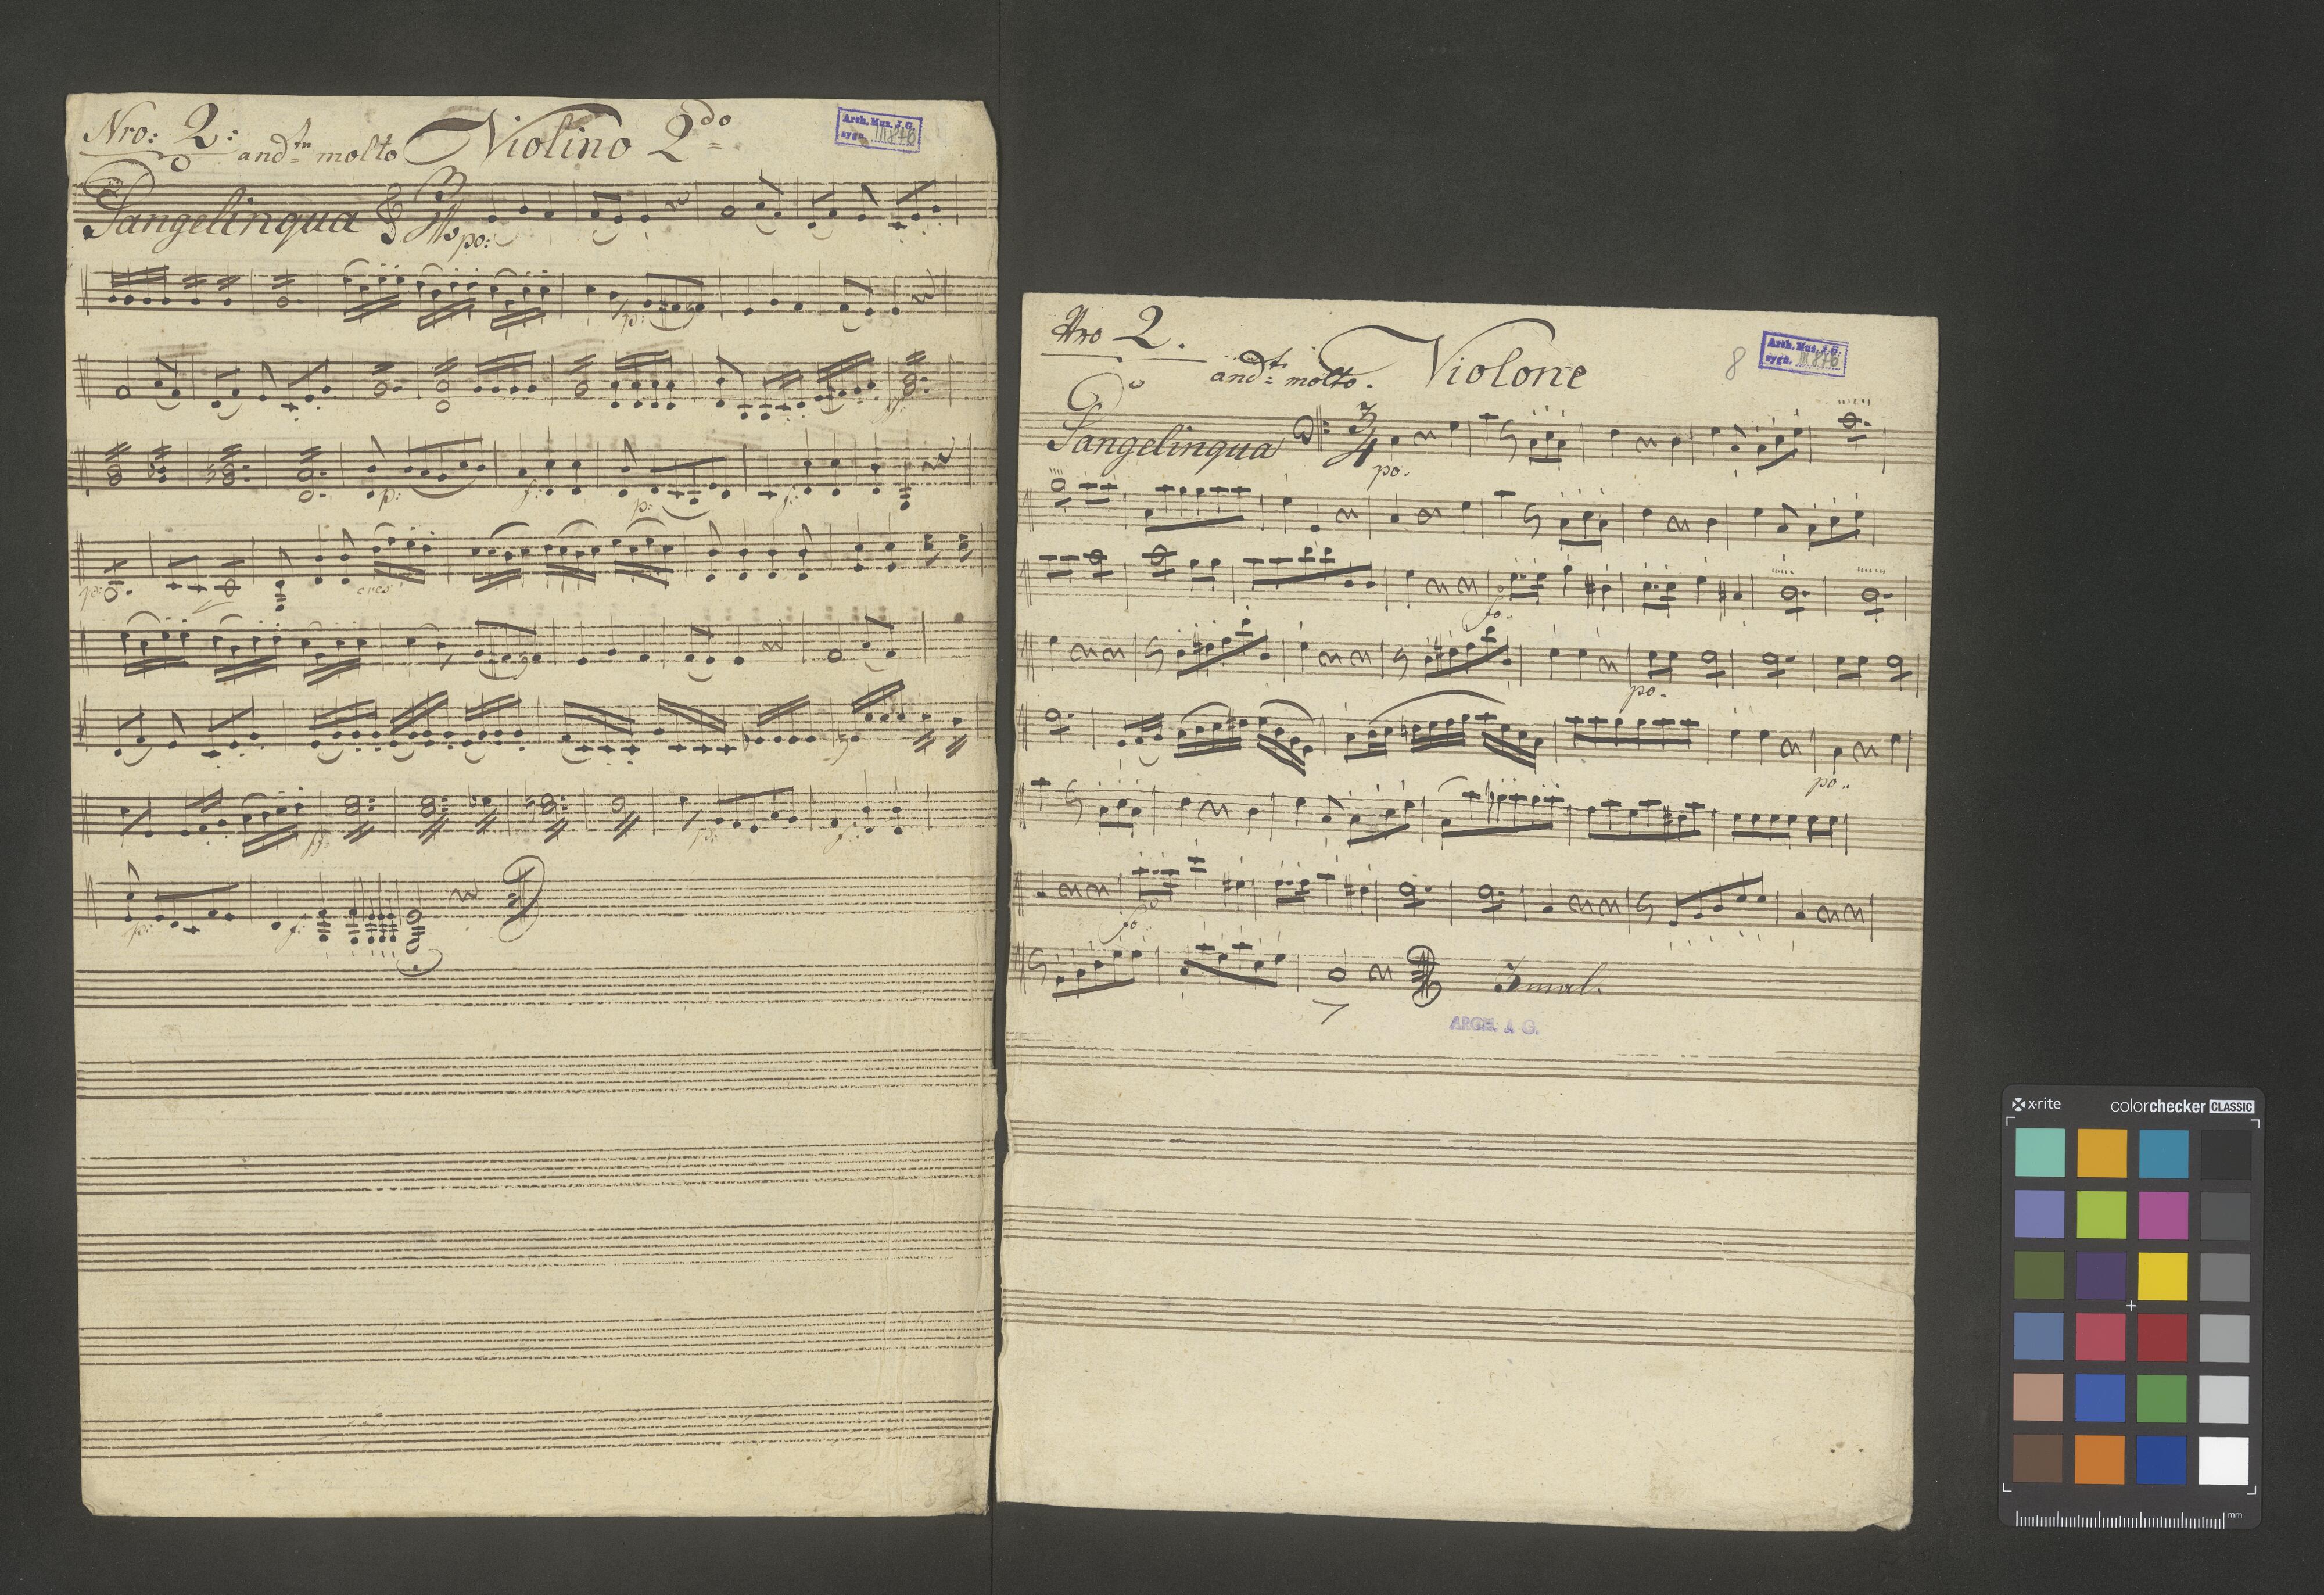 Nro: 2: andtn molto Violino 2do
Arch. Mus. J. G.
sygn. III 876
Pangelinqua po:
p:
p: f: p: f:
p: cresc
ff p: f:
p: f:
Nro 2. andtn molto. Violone 8
Arch. Mus. J. G.
sygn. III 876
Pangelinqua 3/4 po.
fo.
po.
po.
fo.
3 mal.
ARCH. J. G.
x-rite colorchecker CLASSIC
mm